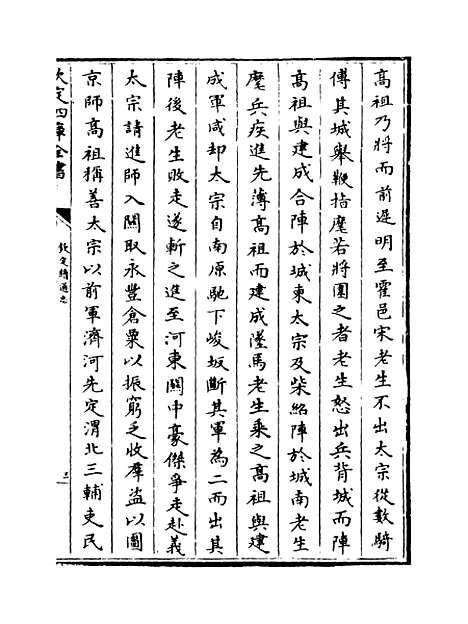 高祖乃將而前遲明至霍邑宋老生不出太宗從數騎
傅其城舉鞭指麾若將圍之者老生怒出兵背城而陣
髙祖與建成合陣於城東太宗及柴紹陣於城南老生
麾兵疾進先薄髙祖而建成墜馬老生乗之髙祖與建
成軍咸却太宗自南原馳下峻坂斷其軍為二而出其
陣後老生敗走遂斬之進至河東關中豪傑爭走赴義
太宗請進師入關取永豐倉粟以振窮乏收羣盗以圖
京師髙祖稱善太宗以前軍濟河先定渭北三輔吏民
欽定四庫全書
欽定續通志
三